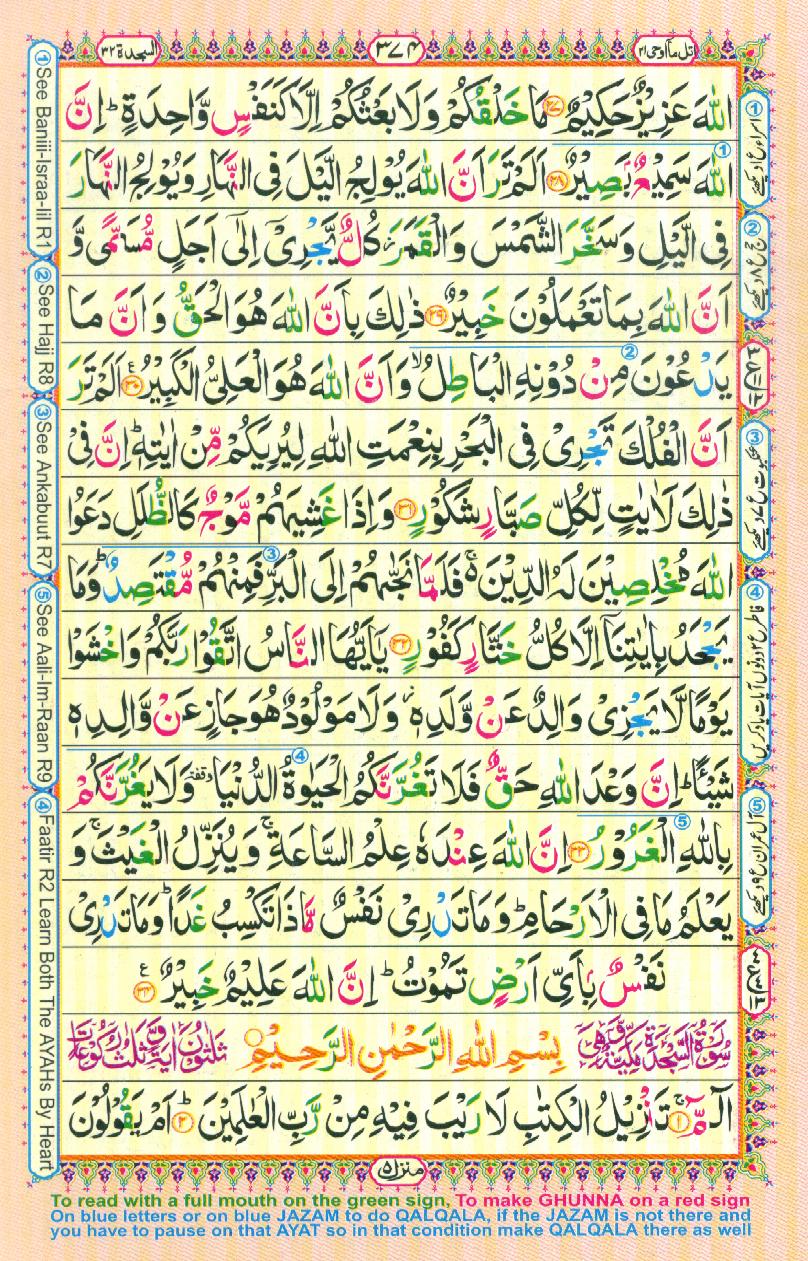 تل ما اوحی ۲۱
۳۷۴
السجدة ۳۲
اللّٰهَ عَزِیْزٌ حَكِیْمٌ ۲۷ مَا خَلْقُكُمْ وَلَا بَعْثُكُمْ اِلَّا كَنَفْسٍ وَّاحِدَةٍ ؕ اِنَّ
اللّٰهَ سَمِیْعٌۢ بَصِیْرٌ ۲۸ اَلَمْ تَرَ اَنَّ اللّٰهَ یُوْلِجُ الَّیْلَ فِی النَّهَارِ وَیُوْلِجُ النَّهَارَ
فِی الَّیْلِ وَسَخَّرَ الشَّمْسَ وَالْقَمَرَ ؗ كُلٌّ یَّجْرِیْۤ اِلٰۤی اَجَلٍ مُّسَمًّی وَّ
اَنَّ اللّٰهَ بِمَا تَعْمَلُوْنَ خَبِیْرٌ ۲۹ ذٰلِكَ بِاَنَّ اللّٰهَ هُوَ الْحَقُّ وَ اَنَّ مَا
یَدْعُوْنَ مِنْ دُوْنِهِ الْبَاطِلُ ۙ وَاَنَّ اللّٰهَ هُوَ الْعَلِیُّ الْكَبِیْرُ ۳۰ اَلَمْ تَرَ
اَنَّ الْفُلْكَ تَجْرِیْ فِی الْبَحْرِ بِنِعْمَتِ اللّٰهِ لِیُرِیَكُمْ مِّنْ اٰیٰتِهٖ ؕ اِنَّ فِیْ
ذٰلِكَ لَاٰیٰتٍ لِّكُلِّ صَبَّارٍ شَكُوْرٍ ۳۱ وَاِذَا غَشِیَهُمْ مَّوْجٌ كَالظُّلَلِ دَعَوُا
اللّٰهَ مُخْلِصِیْنَ لَهُ الدِّیْنَ ۚ۬ فَلَمَّا نَجّٰىهُمْ اِلَی الْبَرِّ فَمِنْهُمْ مُّقْتَصِدٌ ؕ وَمَا
یَجْحَدُ بِاٰیٰتِنَاۤ اِلَّا كُلُّ خَتَّارٍ كَفُوْرٍ ۳۲ یٰۤاَیُّهَا النَّاسُ اتَّقُوْا رَبَّكُمْ وَاخْشَوْا
یَوْمًا لَّا یَجْزِیْ وَالِدٌ عَنْ وَّلَدِهٖ ؗ وَلَا مَوْلُوْدٌ هُوَ جَازٍ عَنْ وَّالِدِهٖ
شَیْـًٔا ؕ اِنَّ وَعْدَ اللّٰهِ حَقٌّ فَلَا تَغُرَّنَّكُمُ الْحَیٰوةُ الدُّنْیَا وقفة وَلَا یَغُرَّنَّكُمْ
بِاللّٰهِ الْغَرُوْرُ ۳۳ اِنَّ اللّٰهَ عِنْدَهٗ عِلْمُ السَّاعَةِ ۚ وَیُنَزِّلُ الْغَیْثَ ۚ وَ
یَعْلَمُ مَا فِی الْاَرْحَامِ ؕ وَمَا تَدْرِیْ نَفْسٌ مَّاذَا تَكْسِبُ غَدًا ؕ وَمَا تَدْرِیْ
نَفْسٌۢ بِاَیِّ اَرْضٍ تَمُوْتُ ؕ اِنَّ اللّٰهَ عَلِیْمٌ خَبِیْرٌ ۳۴ ع
سُوْرَةُ السَّجْدَةِ مَكِّیَّةٌ وَّهِیَ بِسْمِ اللّٰهِ الرَّحْمٰنِ الرَّحِیْمِ ثَلٰثُوْنَ اٰیَةً وَّثَلٰثُ رُكُوْعَاتٍ
الٓمّٓ ۚ ۱ تَنْزِیْلُ الْكِتٰبِ لَا رَیْبَ فِیْهِ مِنْ رَّبِّ الْعٰلَمِیْنَ ؕ ۲ اَمْ یَقُوْلُوْنَ
منزل ۵
① See Baniii-Israa-Iil R1
② See Hajj R8
③ See Ankabuut R7
⑤ See Aali-Im-Raan R9
④ Faatir R2 Learn Both The AYAHs By Heart
To read with a full mouth on the green sign, To make GHUNNA on a red sign
On blue letters or on blue JAZAM to do QALQALA, if the JAZAM is not there and
you have to pause on that AYAT so in that condition make QALQALA there as well